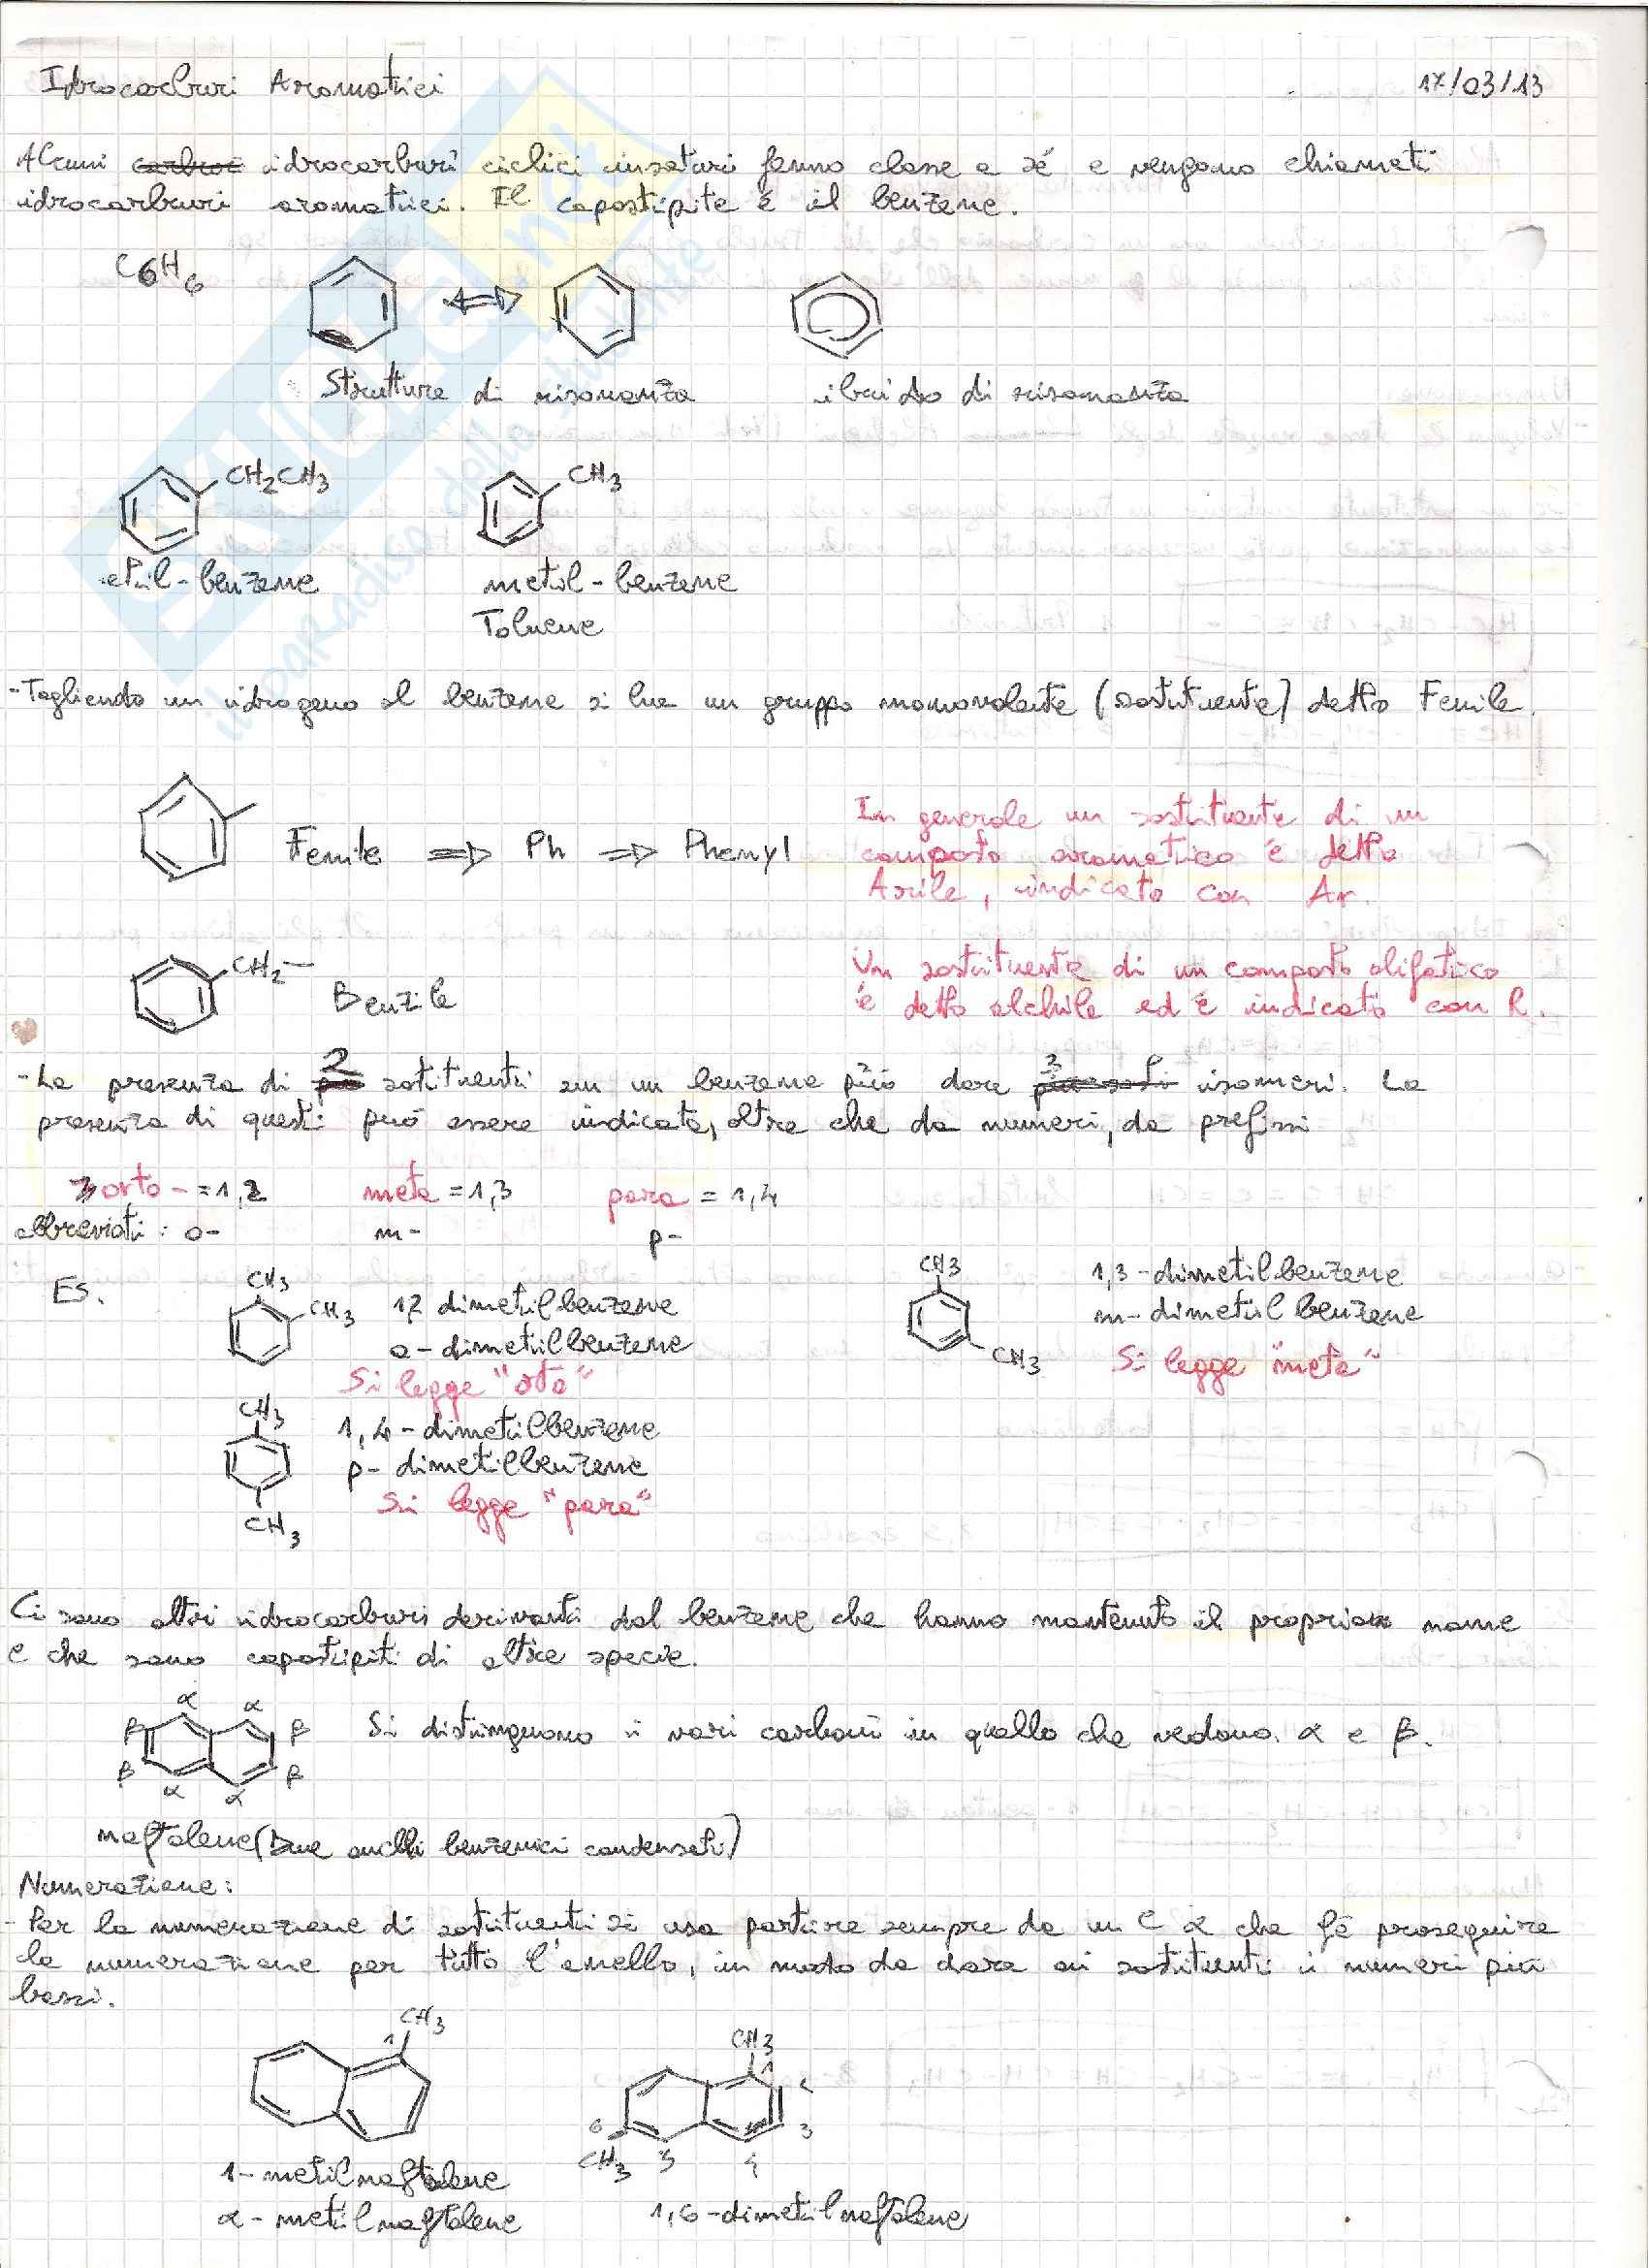 Idrocarburi Aromatici 17/03/13
Alcuni idrocarburi ciclici insaturi fanno classe a sé e vengono chiamati
idrocarburi aromatici. Il capostipite è il benzene.
C6H6
Strutture di risonanza ibrido di risonanza
CH2CH3 CH3
etil-benzene metil-benzene
Toluene
-Togliendo un idrogeno al benzene si ha un gruppo monovalente (sostituente) detto Fenile.
Fenile ⇒ Ph ⇒ Phenyl
In generale un sostituente di un
composto aromatico è detto
Arile, indicato con Ar.
CH2— Benzile
Un sostituente di un composto alifatico
è detto alchile ed è indicato con R.
-La presenza di 2 sostituenti su un benzene può dare 3 isomeri. La
presenza di questi può essere indicata, oltre che da numeri, da prefissi
orto-=1,2 meta=1,3 para=1,4
abbreviati: o- m- p-
ES.
CH3
CH3
1,2 dimetilbenzene
o-dimetilbenzene
Si legge "oto"
CH3
CH3
1,3-dimetilbenzene
m-dimetilbenzene
Si legge "meta"
CH3
1,4-dimetilbenzene
p-dimetilbenzene
Si legge "para"
CH3
Ci sono altri idrocarburi derivanti dal benzene che hanno mantenuto il proprio nome
e che sono capostipiti di altre specie.
α α
β β
β β
α α
Si distinguono i vari carboni in quello che vedono. α e β.
naftalene (Due anelli benzenici condensati)
Numerazione:
-Per la numerazione di sostituenti si usa partire sempre da un C α che fà proseguire
la numerazione per tutto l'anello, in modo da dare ai sostituenti i numeri più
bassi.
CH3
1
CH3
1
2
3
4
5
6
CH3
1-metilnaftalene
α-metilnaftalene
1,6-dimetilnaftalene